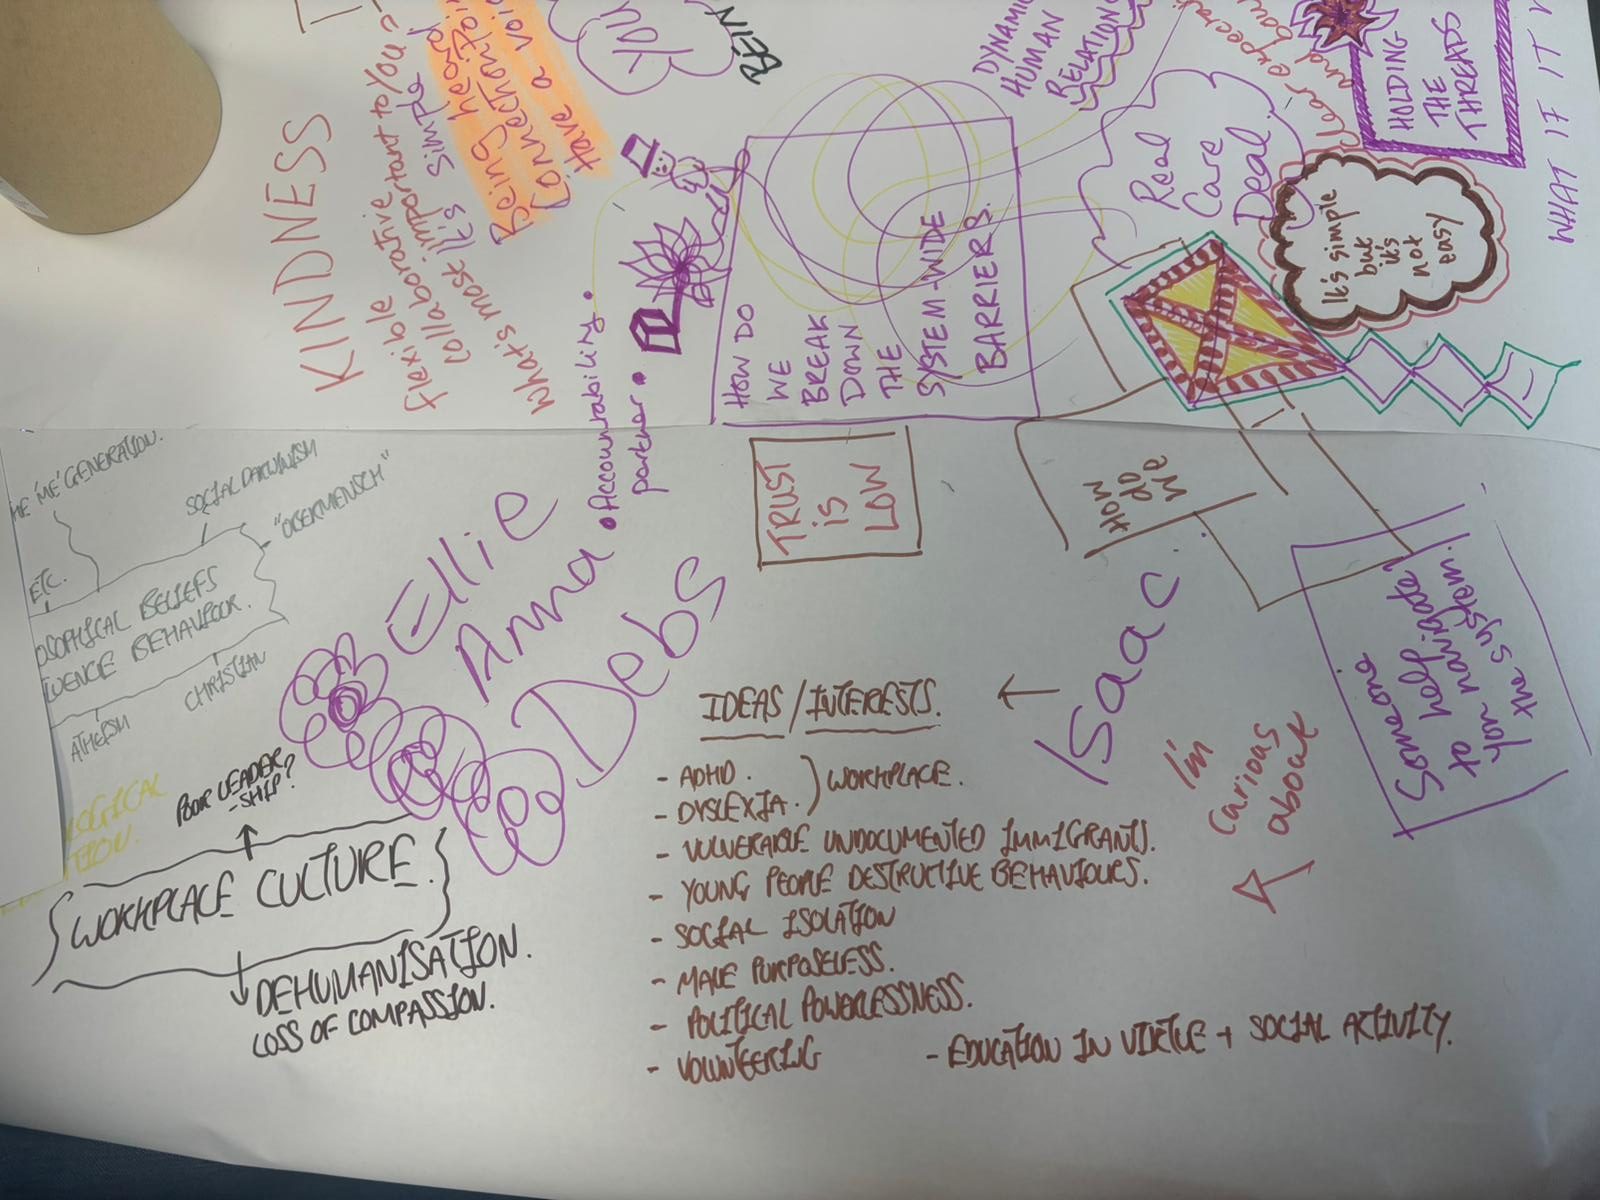 KINDNESS
flexible
collaborative
What's most important to you
It's simple
Being heard
Connection
Have a
You
BEIN
DYNAMIC
HUMAN
RELATING
Real
Care
Deal
Clear
and
HOLDING
THE
THREADS
WHAT IF IT
It's simple
but
it's
not
easy
HOW DO
WE
BREAK
DOWN
THE
SYSTEM-WIDE
BARRIERS.
• Accountability •
partner •
TRUST
IS
LOW
HOW
DO
WE
Someone
to help
you navigate
the system.
HE 'ME' GENERATION.
SOCIAL DARWINISM
"UBERMENSCH"
ETC.
OSOPHICAL BELIEFS
UENCE BEHAVIOUR.
ATHEISM
CHRISTIAN
Ellie
Anna
Debs
Isaac
I'm
curious
about
POOR LEADER
-SHIP?
WORKPLACE CULTURE.
DEHUMANISATION.
LOSS OF COMPASSION.
IDEAS / INTERESTS.
- ADHD. ) WORKPLACE.
- DYSLEXIA. )
- VULNERABLE UNDOCUMENTED IMMIGRANTS.
- YOUNG PEOPLE DESTRUCTIVE BEHAVIOURS.
- SOCIAL ISOLATION
- MALE PURPOSELESS.
- POLITICAL POWERLESSNESS.
- VOLUNTEERING - EDUCATION IN VIRTUE + SOCIAL ACTIVITY.